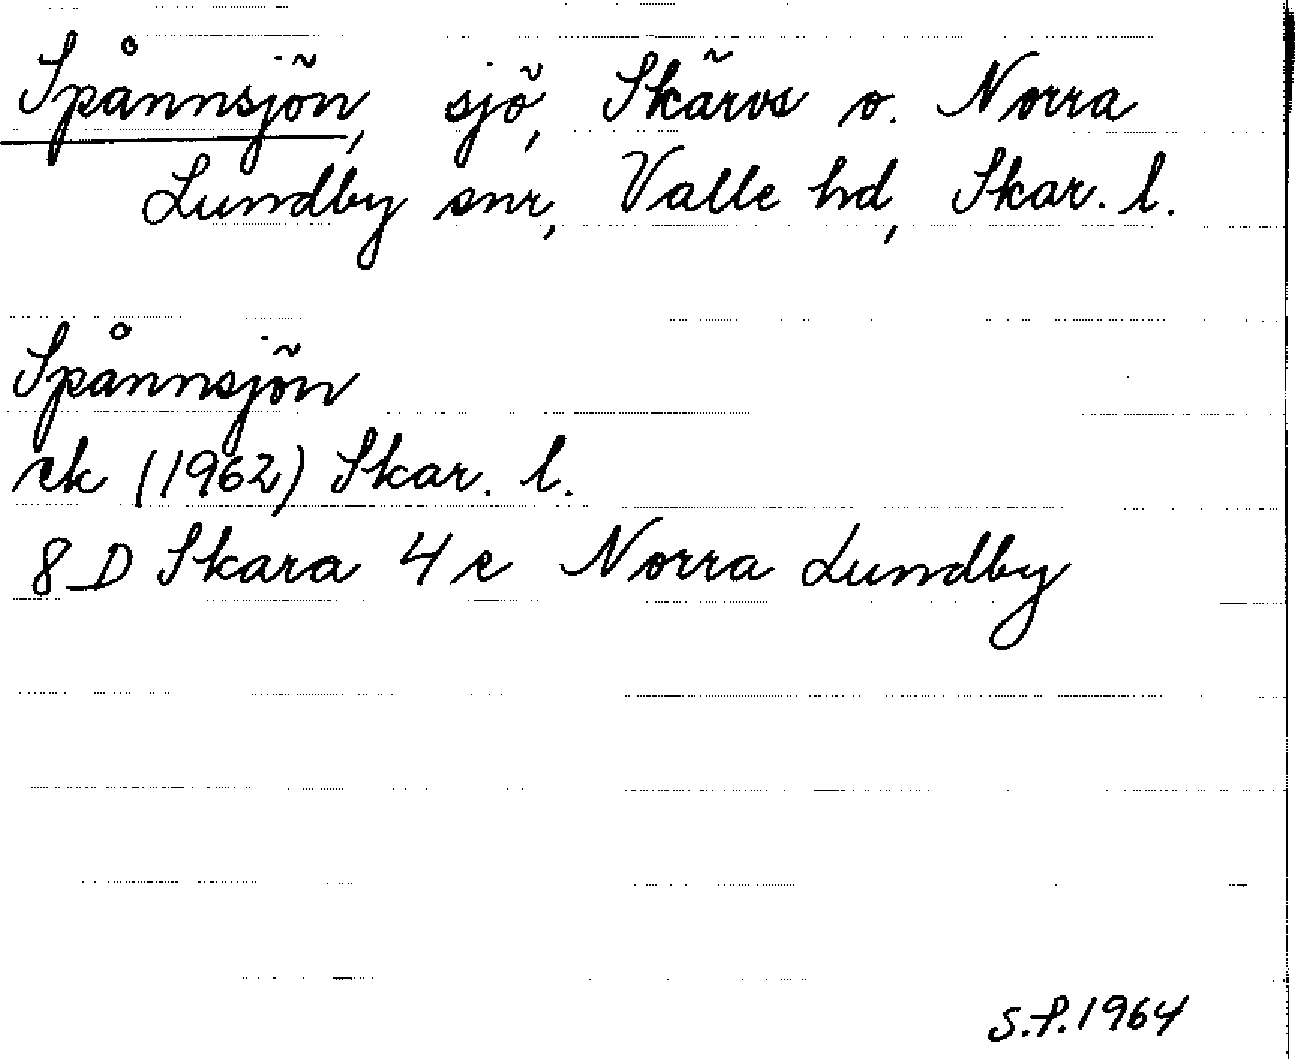 Spånnsjön, sjö, Skärvs o. Norra
Lundby snr, Valle hd, Skar. l.
Spånnsjön
ek (1962) Skar. l.
8 D Skara 4 e Norra Lundby
S.P. 1964